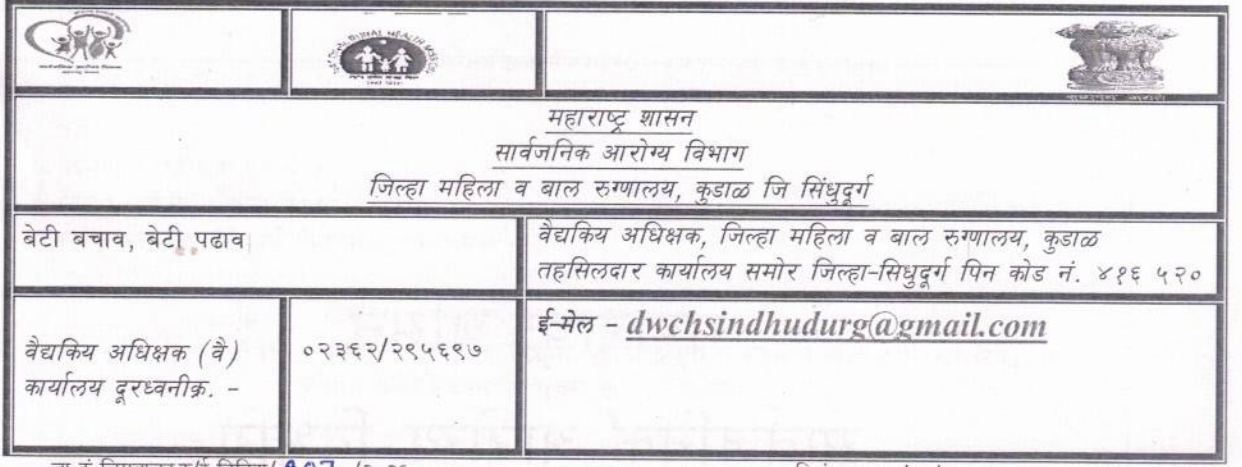 NATIONAL RURAL HEALTH MISSION
महाराष्ट्र शासन
सार्वजनिक आरोग्य विभाग
जिल्हा महिला व बाल रुग्णालय, कुडाळ जि सिंधुदूर्ग
बेटी बचाव, बेटी पढाव
वैद्यकिय अधिक्षक, जिल्हा महिला व बाल रुग्णालय, कुडाळ
तहसिलदार कार्यालय समोर जिल्हा-सिधुदूर्ग पिन कोड नं. ४१६ ५२०
वैद्यकिय अधिक्षक (वै)
कार्यालय दूरध्वनीक्र. -
०२३६२/२९५६९७
ई-मेल - dwchsindhudurg@gmail.com